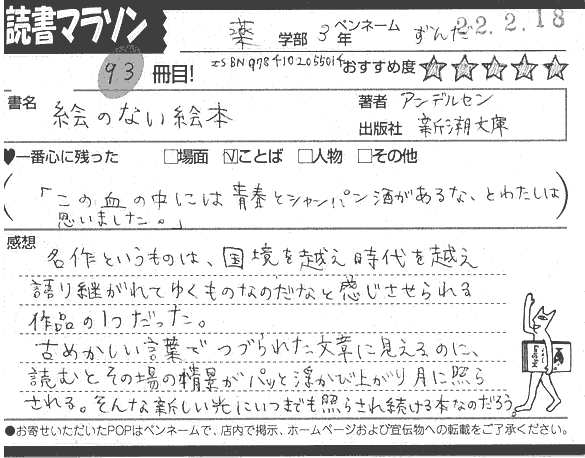 読書マラソン
薬 学部 3年 ペンネーム ずんだ 22.2.18
93 冊目! ISBN9784102055014 おすすめ度 ☆☆☆☆☆
書名 絵のない絵本
著者 アンデルセン
出版社 新潮文庫
♥一番心に残った □場面 ☑ことば □人物 □その他
「この血の中には青春とシャンパン酒があるな、とわたしは
思いました。」
感想
名作というものは、国境を越え時代を越え
語り継がれてゆくものなのだなと感じさせられる
作品の1つだった。
古めかしい言葉でつづられた文章に見えるのに、
読むとその場の情景がパッと浮かび上がり月に照ら
される。そんな新しい光にいつまでも照らされ続ける本なのだろう。
●お寄せいただいたPOPはペンネームで、店内で掲示、ホームページおよび宣伝物への転載をご了承ください。